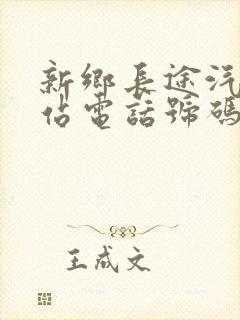 新鄉長途汽
站電話號碼
王成文